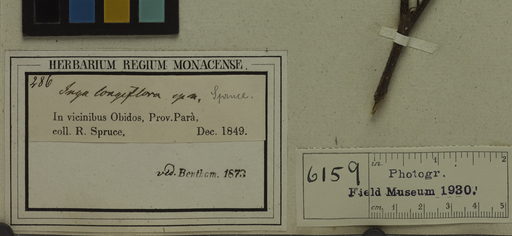 HERBARIUM REGIUM MONACENSE.
286
Inga longiflora Spruce.
In vicinibus Obidos, Prov. Parà,
coll. R. Spruce, Dec. 1849.
vid. Bentham. 1873.
6159
in. 1 2
Photogr.
Field Museum 1930.
cm. 1 2 3 4 5